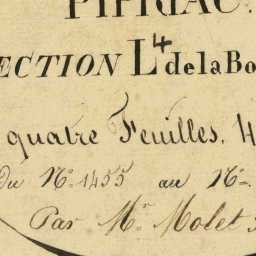 PIPRIAC.
ECTION L4 de la Bo
quatre Feuilles. 4
Du N.o 1455 au N.o
Par M.r Molet